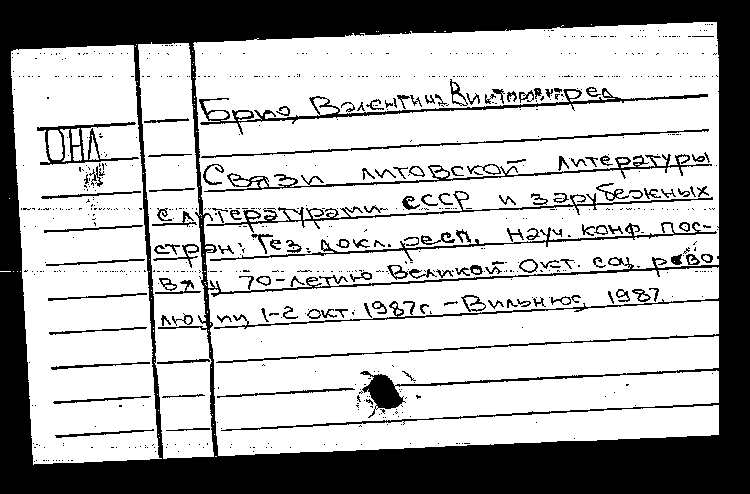 Брио, Валентина Викторовна ред.
ОНЛ
Связи литовской литературы
с литературами СССР и зарубежных
стран: Тез. докл. респ. науч. конф., пос-
вящ. 70-летию Великой Окт. соц. рево-
люции, 1-2 окт. 1987г. - Вильнюс, 1987.